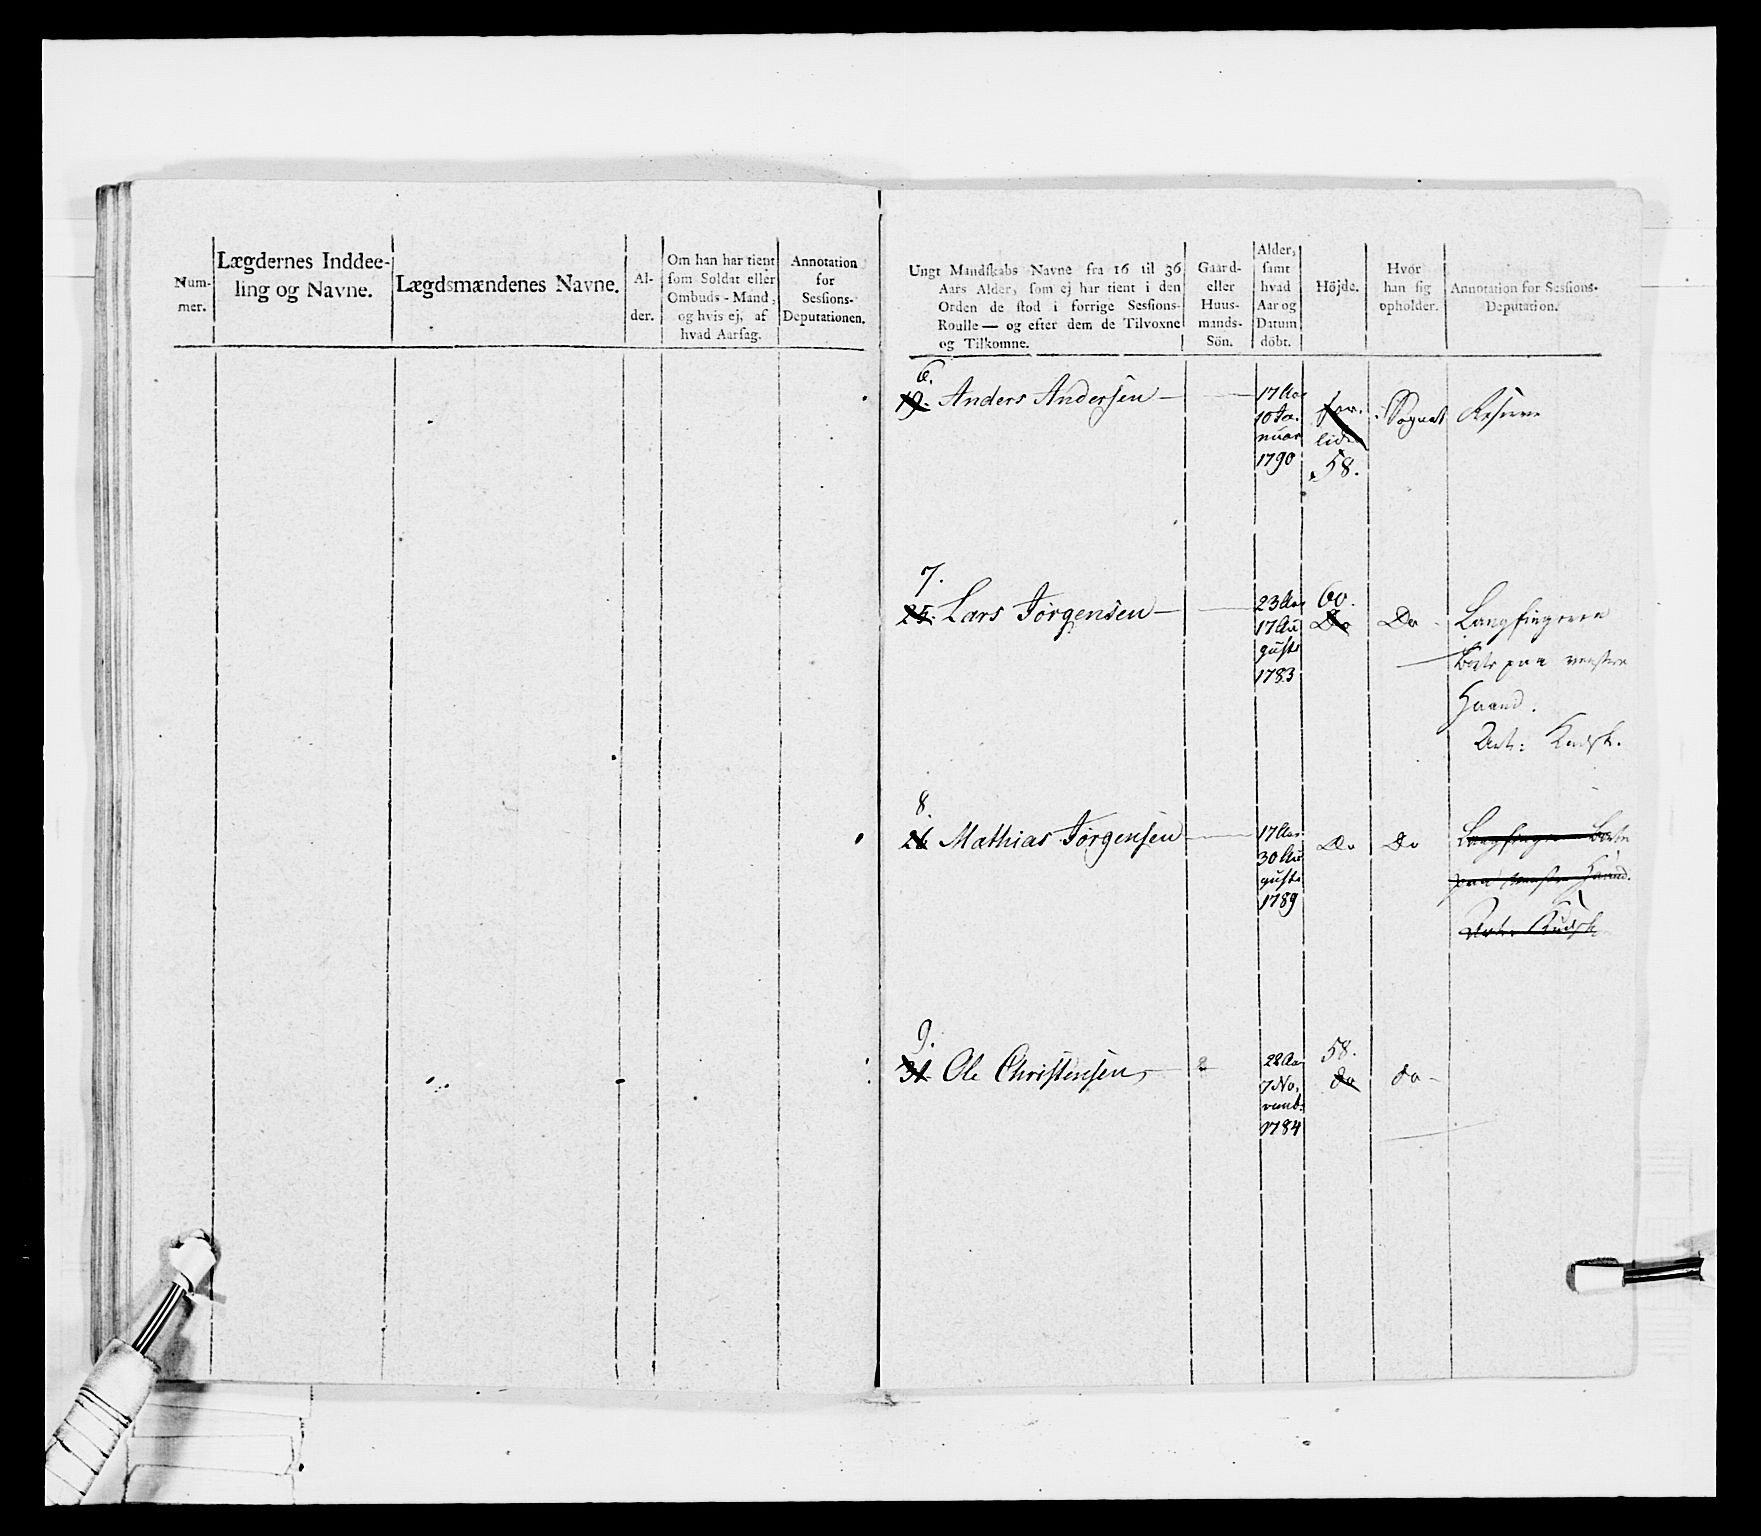 Num-
mer.
Lægdernes Inddee-
ling og Navne.
Lægdsmændenes Navne.
Al-
der.
Om han har tient
som Soldat eller
Ombuds-Mand,
og hvis ej, af
hvad Aarsag.
Annotation
for
Sessions-
Deputationen.
Ungt Mandskabs Navne fra 16 til 36
Aars Alder, som ej har tient i den
Orden de stod i forrige Sessions-
Roulle — og efter dem de Tilvoxne
og Tilkomne.
Gaard-
eller
Huus-
mands-
Sön.
Alder,
samt
hvad
Aar og
Datum
döbt.
Höjde.
Hvor
han sig
opholder.
Annotation for Sessions-
Deputation.
6.
19. Anders Andersen —
17 Aar
10 Ja-
nuar
1790
58.
Sognet
Reserve
7.
25. Lars Jørgensen —
23 Aar
17 Au
gusti
1783
60.
Do
Do
Langfingeren
paa venstre
Haand.
8.
26 Mathias Jørgensen
17 Aar
30 Au
gusti
1789
Do
Do
Langfinger
paa venstre Haand.
9.
31 Ole Christensen,
28 Aar
7 No,
vemb.
1784
58.
do
do